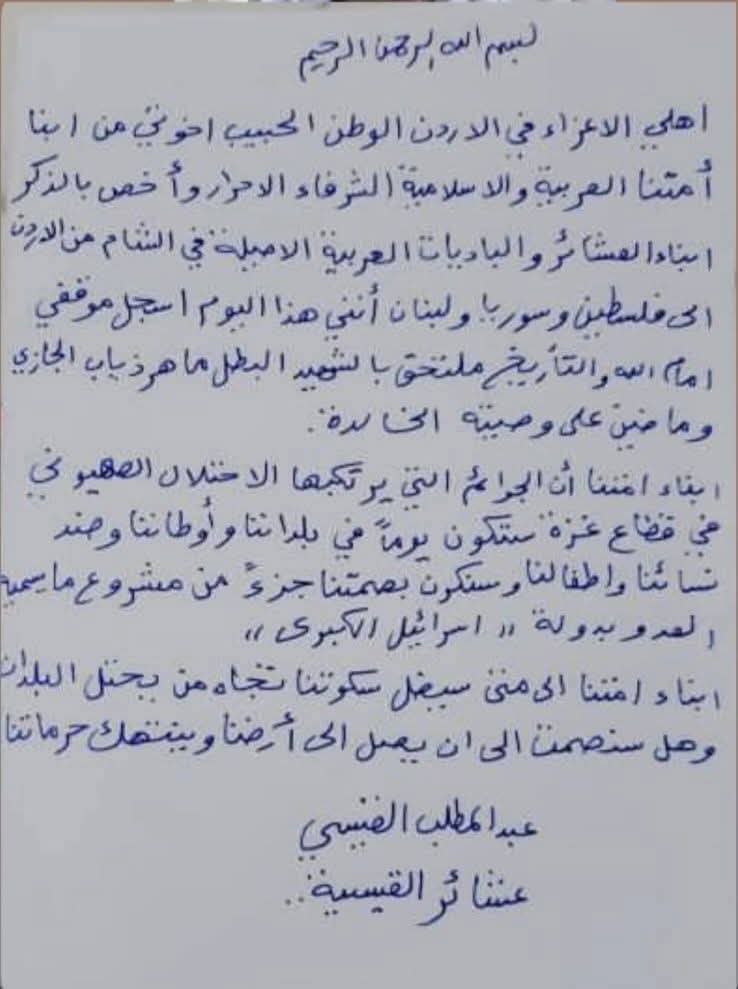 بسم الله الرحمن الرحيم
اهلي الاعزاء في الاردن الوطن الحبيب اخوتي من ابنا
أمتنا العربية والاسلامية الشرفاء الاحرار وأخص بالذكر
ابناء العشائر والباديات العربية الاصيلة في الشام من الاردن
الى فلسطين وسوريا ولبنان أنني هذا اليوم اسجل موقفي
امام الله والتأريخ ملتحق بالشهيد البطل ماهر ذياب الجازي
وماضين على وصيته الخالدة.
ابناء امتنا أن الجرائم التي يرتكبها الاحتلال الصهيوني
في قطاع غزة ستكون يوماً في بلداننا وأوطاننا وضد
نسائنا واطفالنا وسنكون بصمتنا جزءً من مشروع ما يسميه
العدو بدولة " اسرائيل الكبرى "
ابناء امتنا الى متى سيضل سكوتنا تجاه من يحتل البلدان
وهل سنصمت الى ان يصل الى أرضنا وينتهك حرماتنا
عبدالمطلب القيسي
عشائر القيسية..